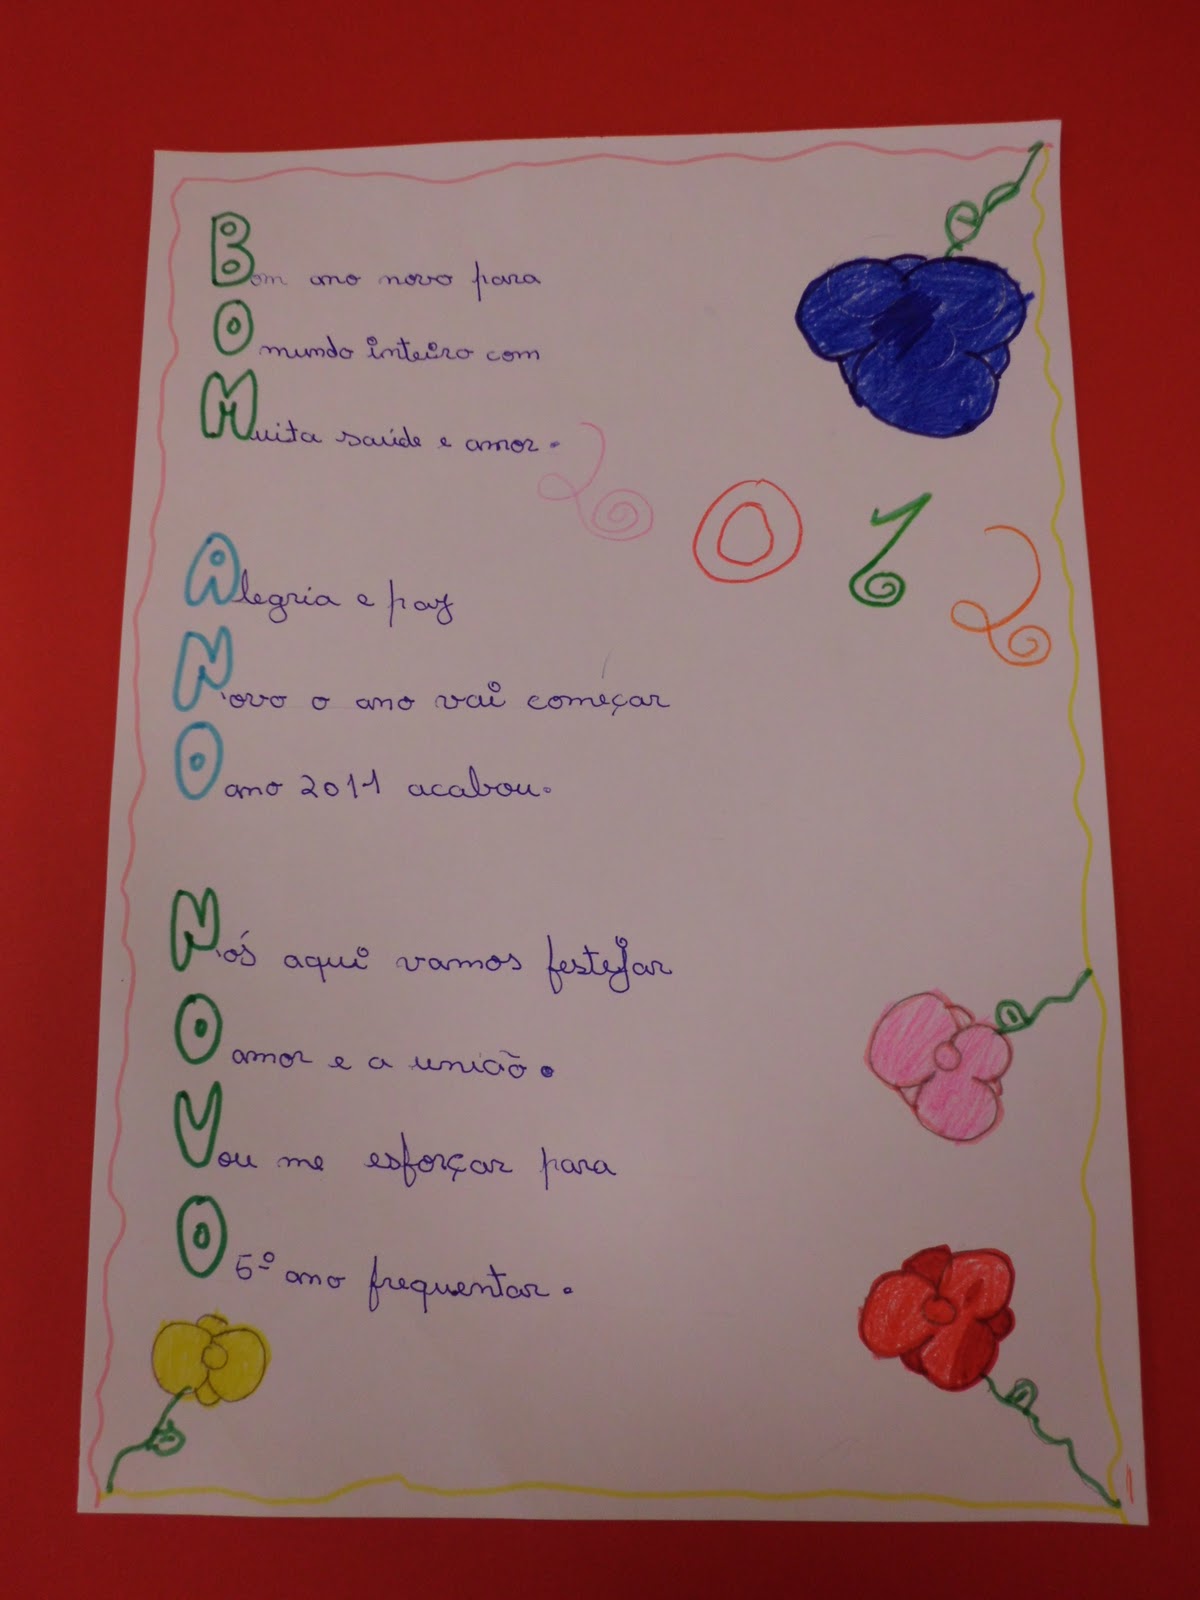 Bom ano novo para
O mundo inteiro com
Muita saúde e amor.
2012
Alegria e paz
Novo o ano vai começar
O ano 2011 acabou.
Nós aqui vamos festejar
O amor e a união.
Vou me esforçar para
O 5º ano frequentar.